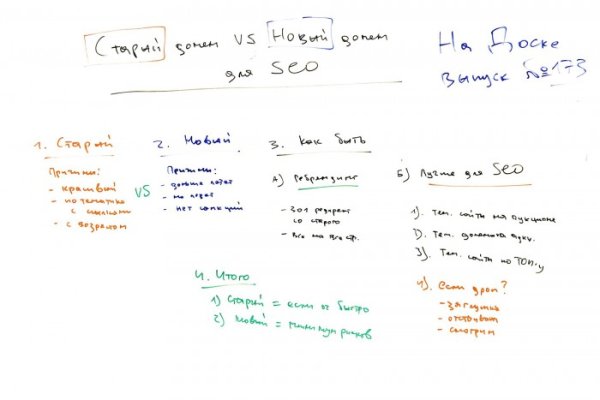 Старый домен VS Новый домен
для SEO
На Доске
выпуск №173
1. Старый
Причины:
- красивый
- по тематике
с ссылками
- с возрастом
VS
2. Новый
Причины:
- дольше
- нет санкций
3. Как быть
А) Ребрендинг
- 301 редирект
со старого
- Все на все стр.
Б) Лучше для SEO
1). Тем. сайты на аукционе
2). Тем. домена аукц.
3). Тем. сайты по ТОП-у
4). если дроп?
- заглушка
- отстоять
- смотрим
4. Итого
1) Старый = если оч быстро
2) Новый = минимум рисков